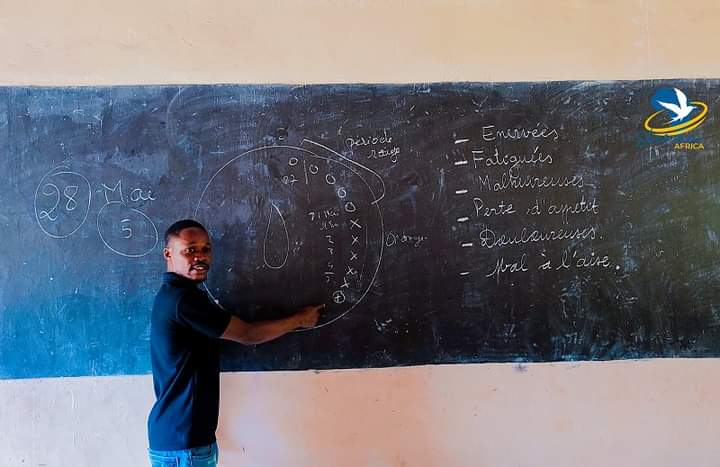 28 Mai
5
période
rouge
O
O
O
O
X
X
X
X
X
Orange
- Enervées
- Fatiguées
- Malheureuses
- Perte d'appetit
- Douloureuses.
- Mal à l'aise.
AFRICA